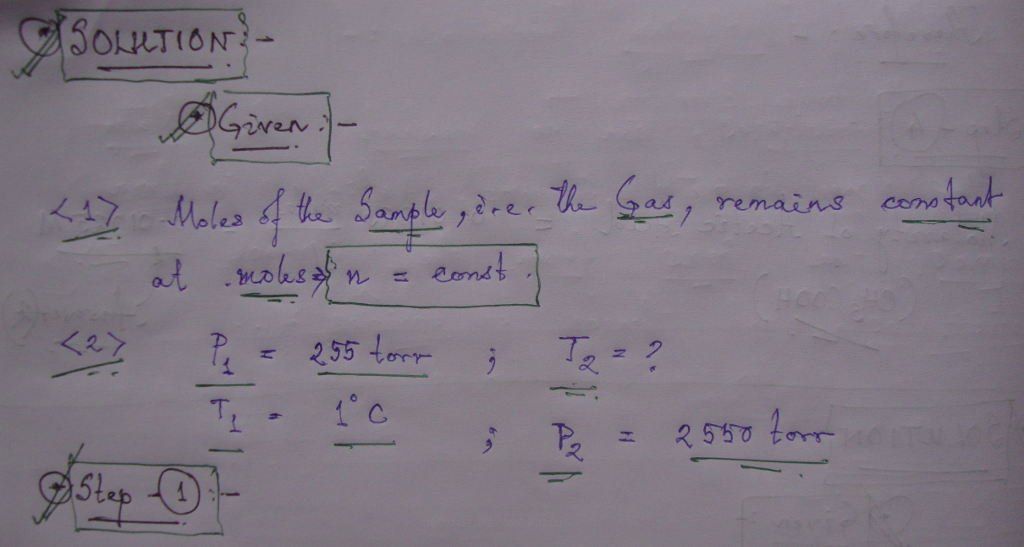 SOLUTION :-
Given :-
<1> Moles of the Sample, i.e. the Gas, remains constant
at moles ⇒ n = const.
<2> P₁ = 255 torr ; T₂ = ?
T₁ = 1°C ; P₂ = 2550 torr
Step - 1 :-